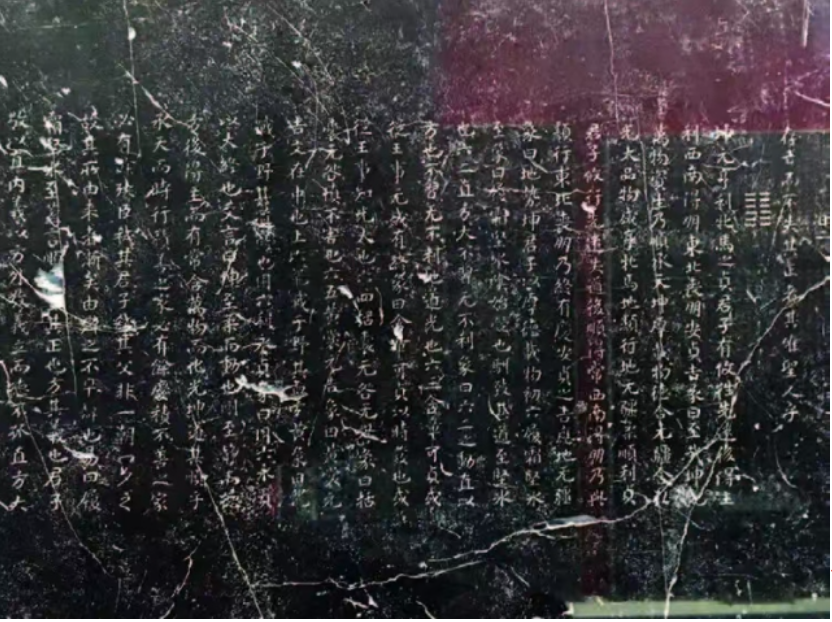 存亡而不失其正者其唯聖人乎
䷁
坤元亨利牝馬之貞君子有攸往先迷後得主
利西南得朋東北喪朋安貞吉彖曰至哉坤元
萬物資生乃順承天坤厚載物德合无疆含弘
光大品物咸亨牝馬地類行地无疆柔順利貞
君子攸行先迷失道後順得常西南得朋乃與
類行東北喪朋乃終有慶安貞之吉應地无疆
象曰地勢坤君子以厚德載物初六履霜堅冰
至象曰履霜堅冰陰始凝也馴致其道至堅冰
也六二直方大不習无不利象曰六二之動直以
方也不習无不利地道光也六三含章可貞或
從王事无成有終象曰含章可貞以時發也或
從王事知光大也六四括囊无咎无譽象曰括
囊无咎慎不害也六五黃裳元吉象曰黃裳元
吉文在中也上六龍戰于野其血玄黃象曰龍
戰于野其道窮也用六利永貞象曰用六永貞
以大終也文言曰坤至柔而動也剛至靜而德
方後得主而有常含萬物而化光坤道其順乎
承天而時行積善之家必有餘慶積不善之家
必有餘殃臣弒其君子弒其父非一朝一夕之
故其所由來者漸矣由辯之不早辯也易曰履
霜堅冰至蓋言順也直其正也方其義也君子
敬以直內義以方外敬義立而德不孤直方大